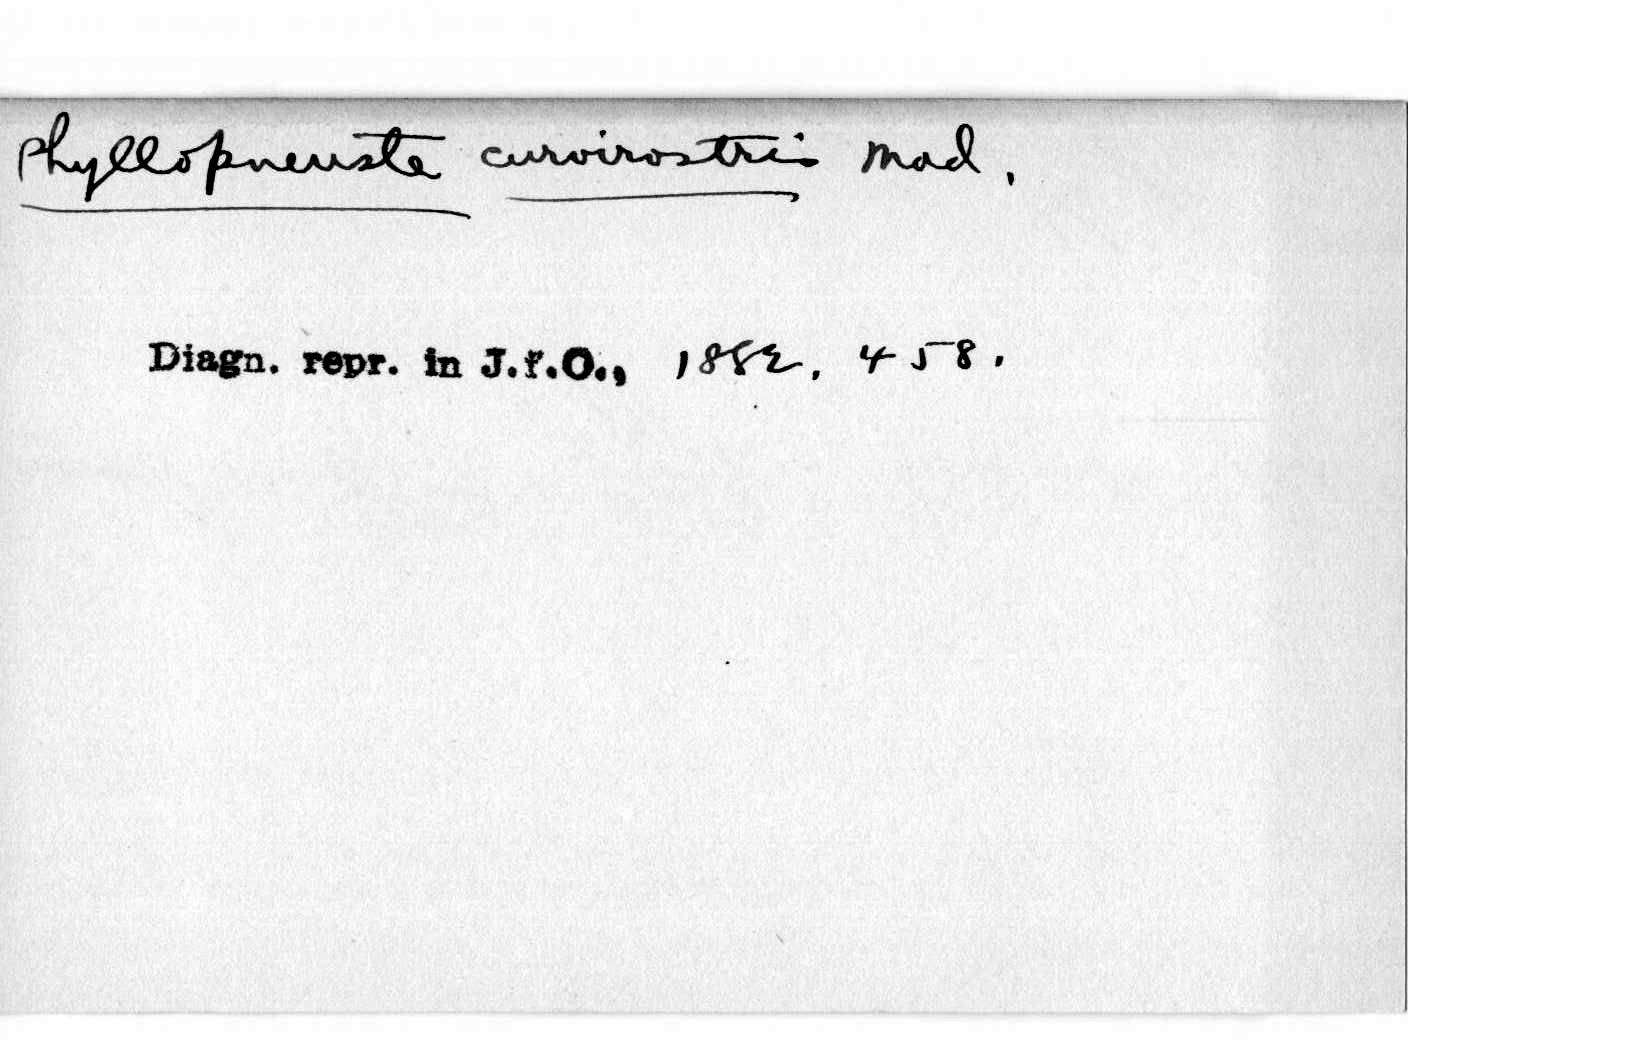 Phyllopneuste curvirostris Mad.
Diagn. repr. in J.f.O., 1882, 458.